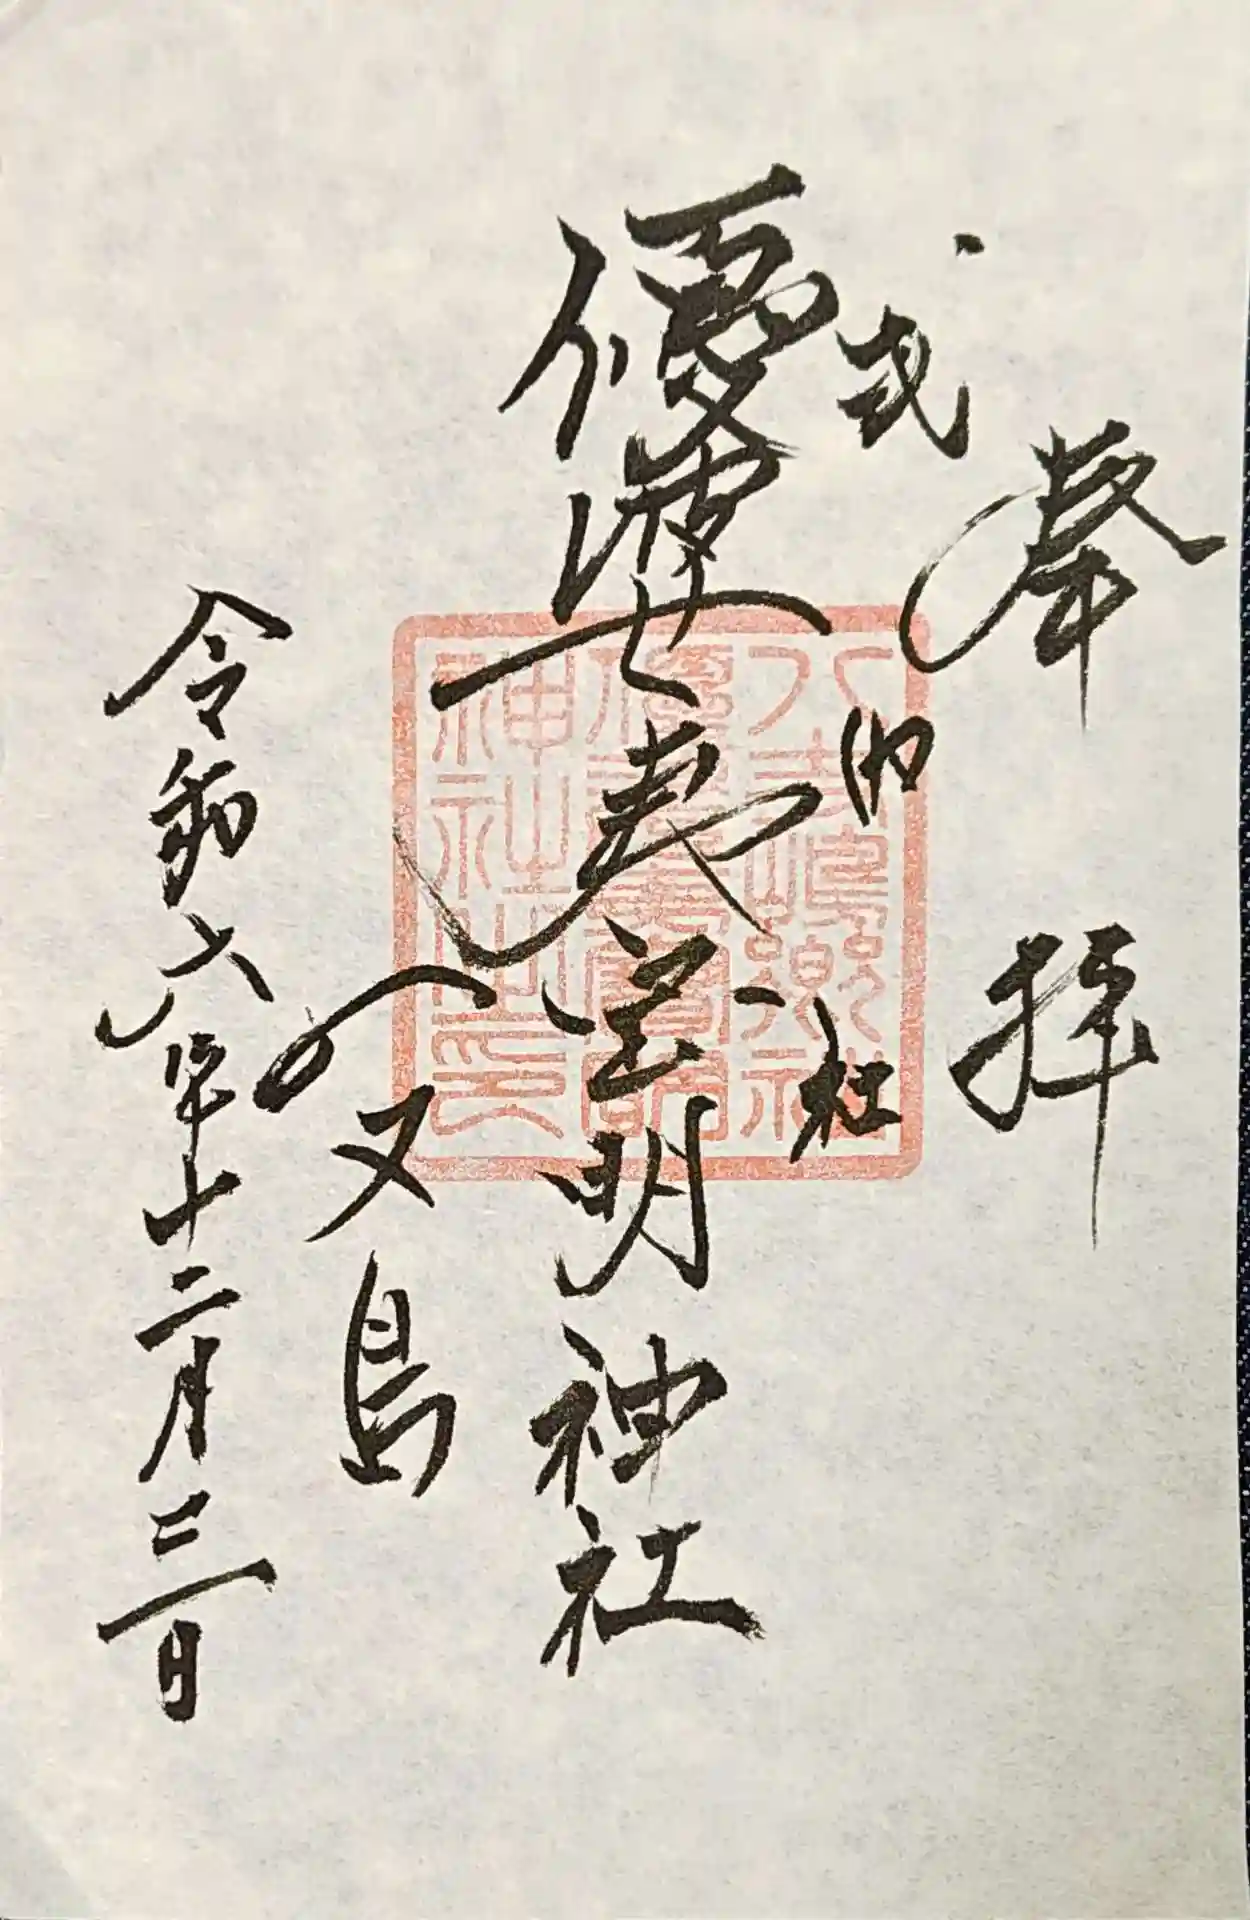 奉拝
式内社
優婆夷宝明神社
八丈島
令和六年十二月三日
八丈嶋
優婆夷寳明
神社之印